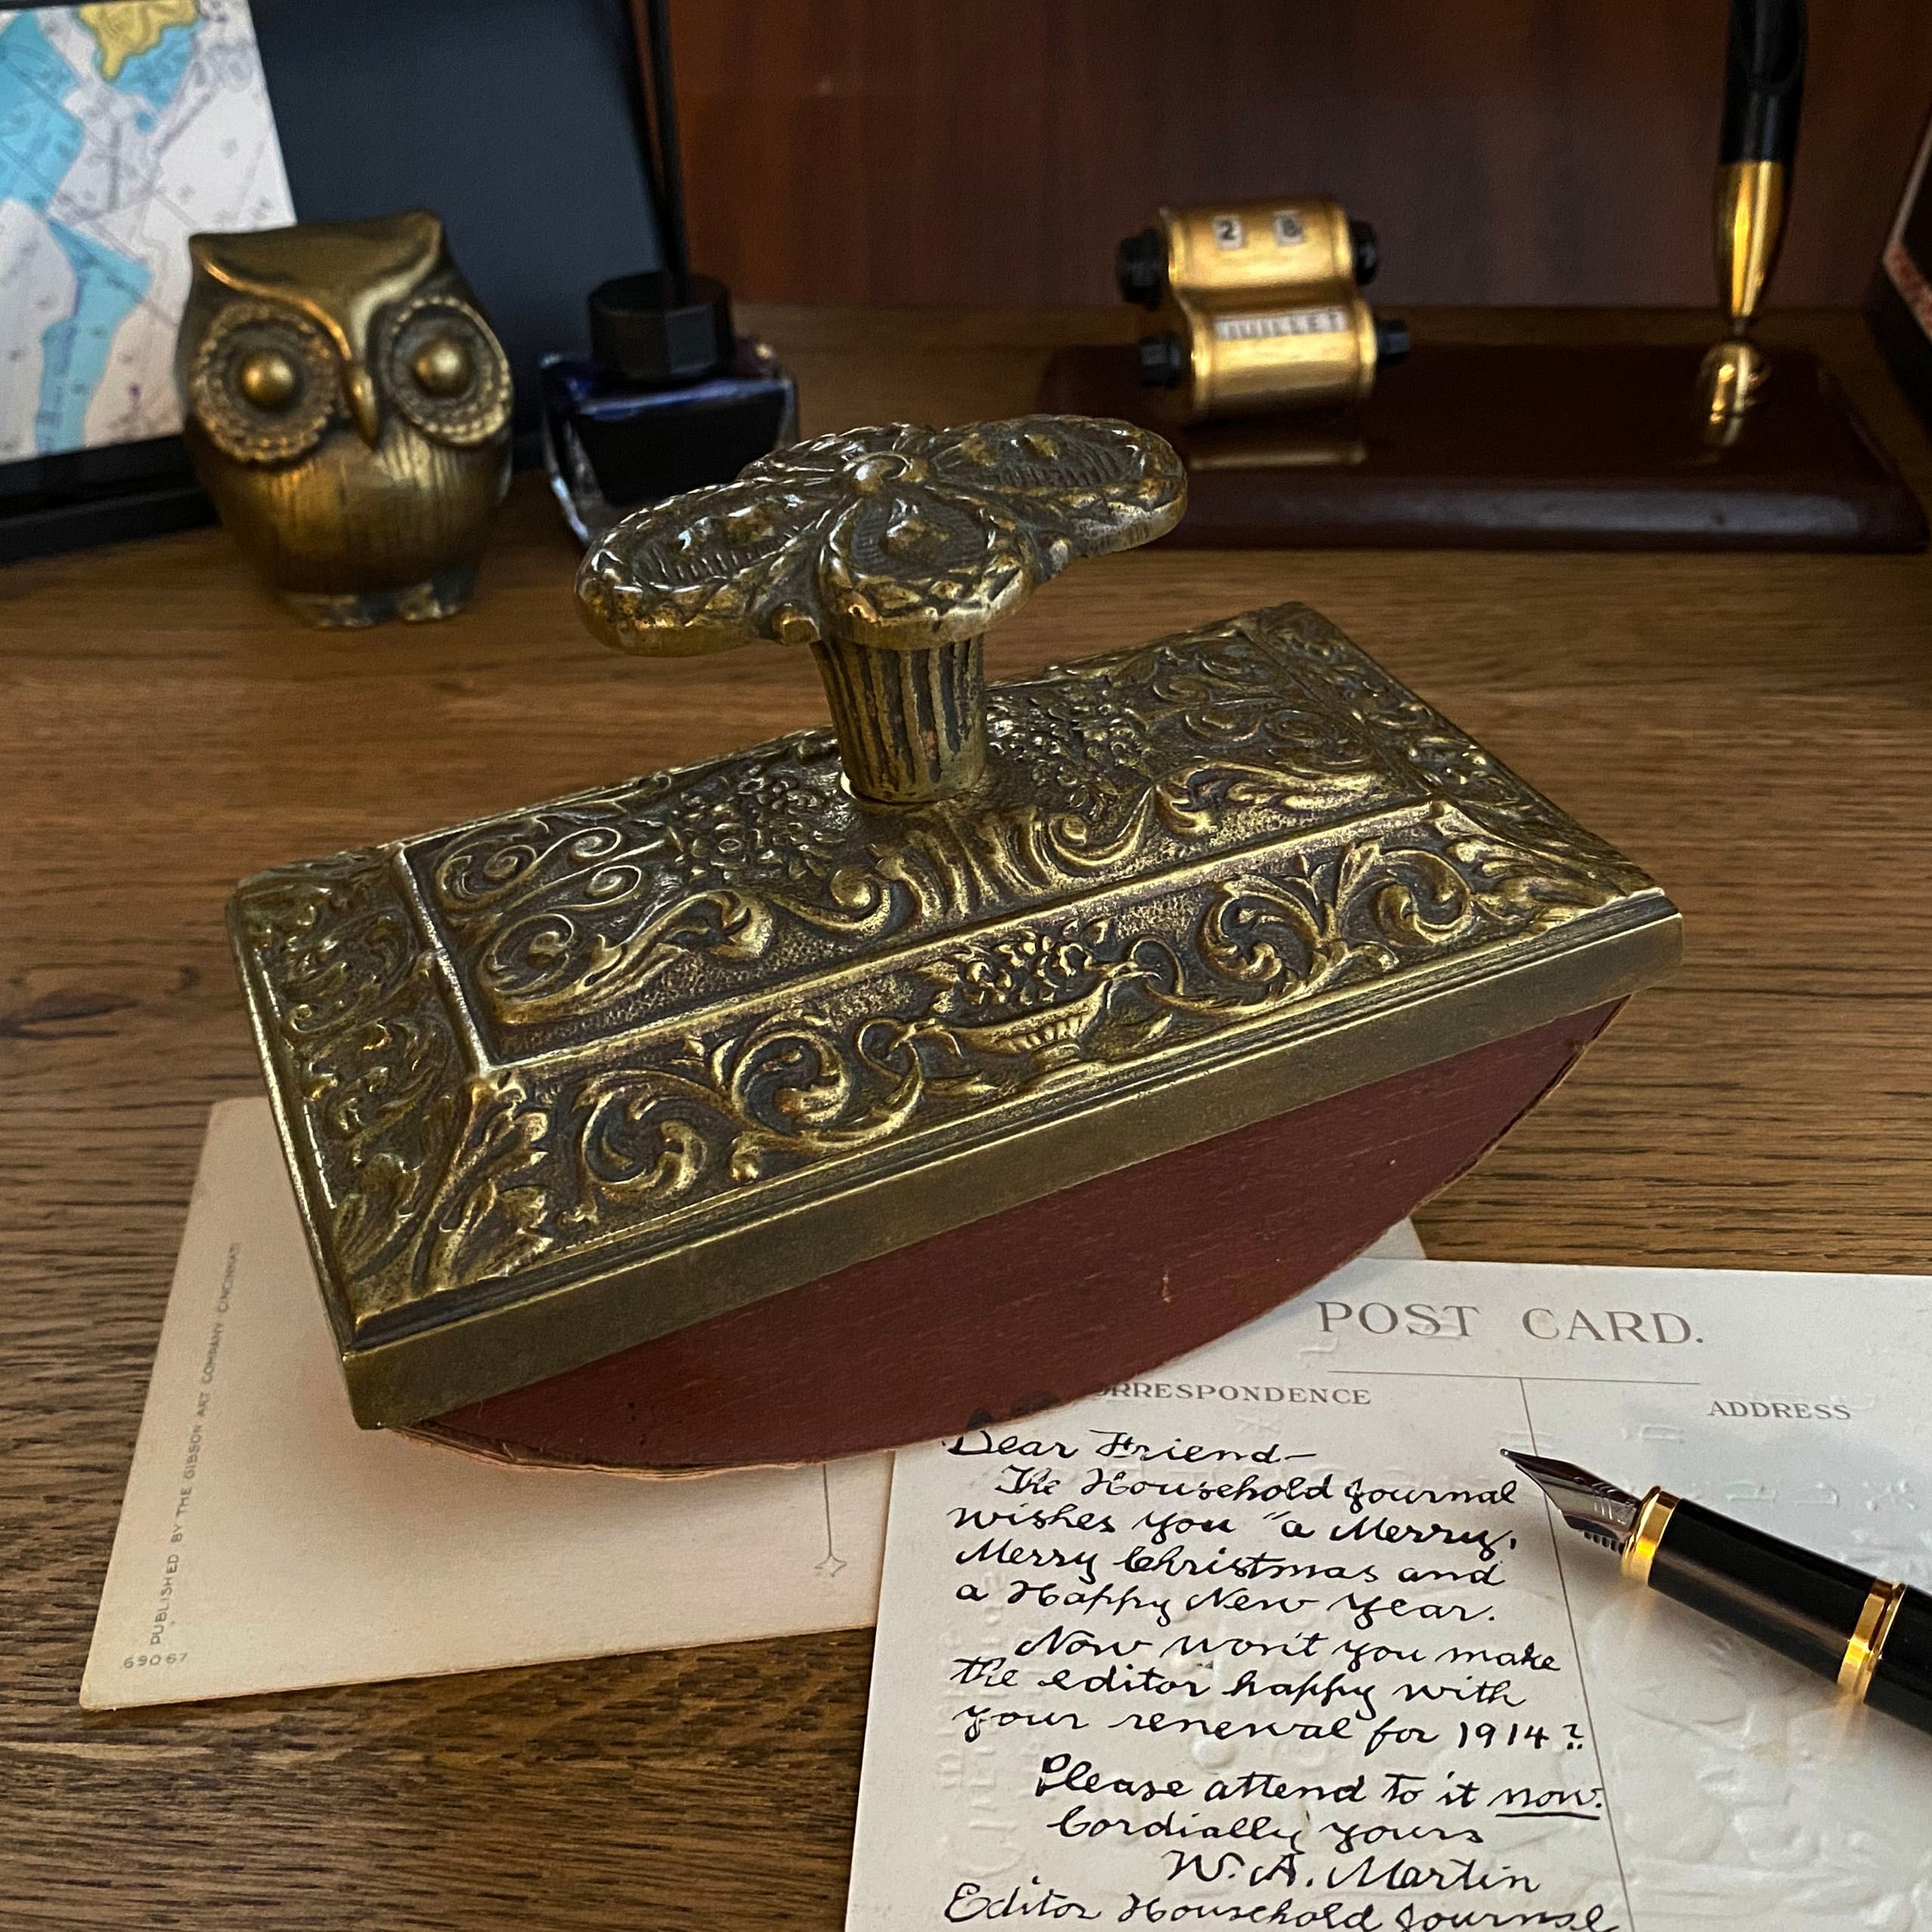 2 8
JUILLET
PUBLISHED BY THE GIBSON ART COMPANY CINCINNATI
69067
POST CARD.
ORRESPONDENCE
ADDRESS
Dear Friend—
The Household Journal
wishes you "a Merry,
Merry Christmas and
a Happy New Year.
Now won't you make
the editor happy with
your renewal for 1914?
Please attend to it now.
Cordially yours
W. A. Martin
Editor Household Journal